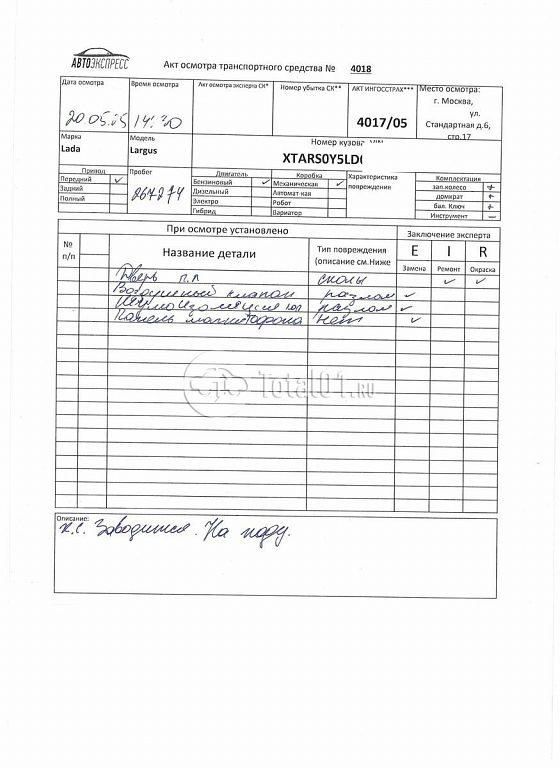 АВТОЭКСПРЕСС
Акт осмотра транспортного средства № 4018
Дата осмотра Время осмотра Акт осмотра эксперта СК* Номер убытка СК** АКТ ИНГОССТРАХ*** Место осмотра:
г. Москва,
ул.
20 05.25 14:30 4017/05 Стандартная д.6,
стр.17
Марка Модель Номер кузова
Lada Largus XTARS0Y5LD
Привод Пробег Двигатель Коробка Характеристика Комплектация
Передний ✓ Бензиновый ✓ Механическая ✓ повреждения зап.колесо +
Задний 267274 Дизельный Автомат-кая домкрат +
Полный Электро Робот бал. Ключ +
Гибрид Вариатор Инструмент –
При осмотре установлено Заключение эксперта
№ Название детали Тип повреждения E I R
п/п (описание см.Ниже Замена Ремонт Окраска
Дверь п.л сколы ✓ ✓
Воздушный клапан разлом ✓
Шумоизоляция разлом ✓
Панель магнитофона нет ✓
Total01.RU
Описание:
к.с. Заводится. На ходу.